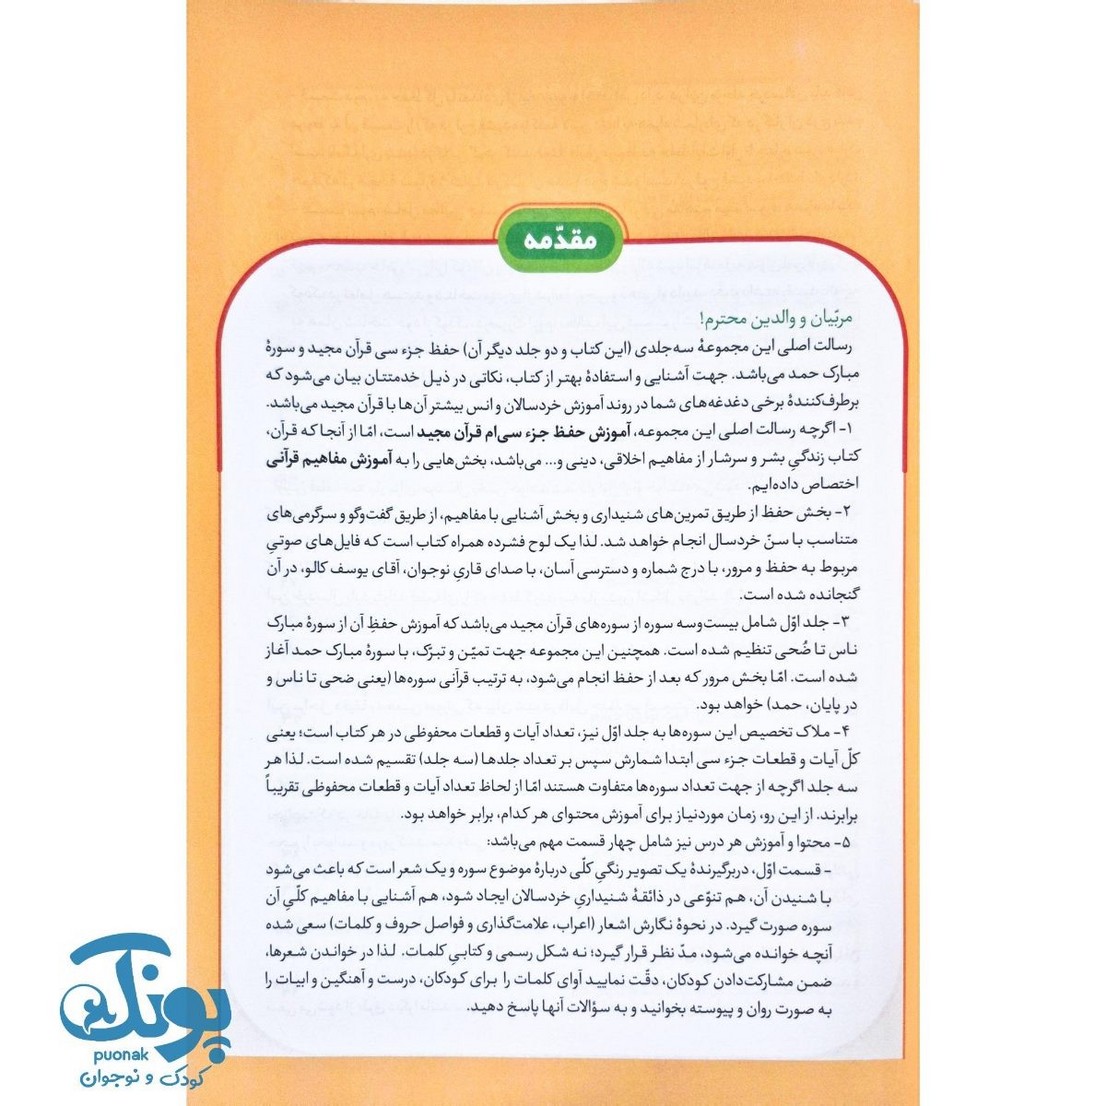 مقدّمه
مربّیان و والدین محترم!
رسالت اصلی این مجموعهٔ سه‌جلدی (این کتاب و دو جلد دیگر آن) حفظ جزء سی قرآن مجید و سورهٔ
مبارک حمد می‌باشد. جهت آشنایی و استفادهٔ بهتر از کتاب، نکاتی در ذیل خدمتتان بیان می‌شود که
برطرف‌کنندهٔ برخی دغدغه‌های شما در روند آموزش خردسالان و انس بیشتر آن‌ها با قرآن مجید می‌باشد.
۱- اگرچه رسالت اصلی این مجموعه، آموزش حفظ جزء سی‌ام قرآن مجید است، امّا از آنجا که قرآن،
کتاب زندگیِ بشر و سرشار از مفاهیم اخلاقی، دینی و... می‌باشد، بخش‌هایی را به آموزش مفاهیم قرآنی
اختصاص داده‌ایم.
۲- بخش حفظ از طریق تمرین‌های شنیداری و بخش آشنایی با مفاهیم، از طریق گفت‌وگو و سرگرمی‌های
متناسب با سنّ خردسال انجام خواهد شد. لذا یک لوح فشرده همراه کتاب است که فایل‌های صوتیِ
مربوط به حفظ و مرور، با درج شماره و دسترسی آسان، با صدای قاریِ نوجوان، آقای یوسف کالو، در آن
گنجانده شده است.
۳- جلد اوّل شامل بیست‌وسه سوره از سوره‌های قرآن مجید می‌باشد که آموزش حفظِ آن از سورهٔ مبارک
ناس تا ضُحی تنظیم شده است. همچنین این مجموعه جهت تمیّن و تبرّک، با سورهٔ مبارک حمد آغاز
شده است. امّا بخش مرور که بعد از حفظ انجام می‌شود، به ترتیب قرآنی سوره‌ها (یعنی ضحی تا ناس و
در پایان، حمد) خواهد بود.
۴- ملاک تخصیص این سوره‌ها به جلد اوّل نیز، تعداد آیات و قطعات محفوظی در هر کتاب است؛ یعنی
کلّ آیات و قطعات جزء سی ابتدا شمارش سپس بر تعداد جلدها (سه جلد) تقسیم شده است. لذا هر
سه جلد اگرچه از جهت تعداد سوره‌ها متفاوت هستند امّا از لحاظ تعداد آیات و قطعات محفوظی تقریباً
برابرند. از این رو، زمان موردنیاز برای آموزش محتوای هر کدام، برابر خواهد بود.
۵- محتوا و آموزش هر درس نیز شامل چهار قسمت مهم می‌باشد:
- قسمت اوّل، دربرگیرندهٔ یک تصویر رنگیِ کلّی دربارهٔ موضوع سوره و یک شعر است که باعث می‌شود
با شنیدن آن، هم تنوّعی در ذائقهٔ شنیداریِ خردسالان ایجاد شود، هم آشنایی با مفاهیم کلّیِ آن
سوره صورت گیرد. در نحوهٔ نگارش اشعار (اعراب، علامت‌گذاری و فواصل حروف و کلمات) سعی شده
آنچه خوانده می‌شود، مدّ نظر قرار گیرد؛ نه شکل رسمی و کتابیِ کلمات. لذا در خواندن شعرها،
ضمن مشارکت‌دادن کودکان، دقّت نمایید آوای کلمات را برای کودکان، درست و آهنگین و ابیات را
به صورت روان و پیوسته بخوانید و به سؤالات آنها پاسخ دهید.
پونک
puonak
کودک و نوجوان